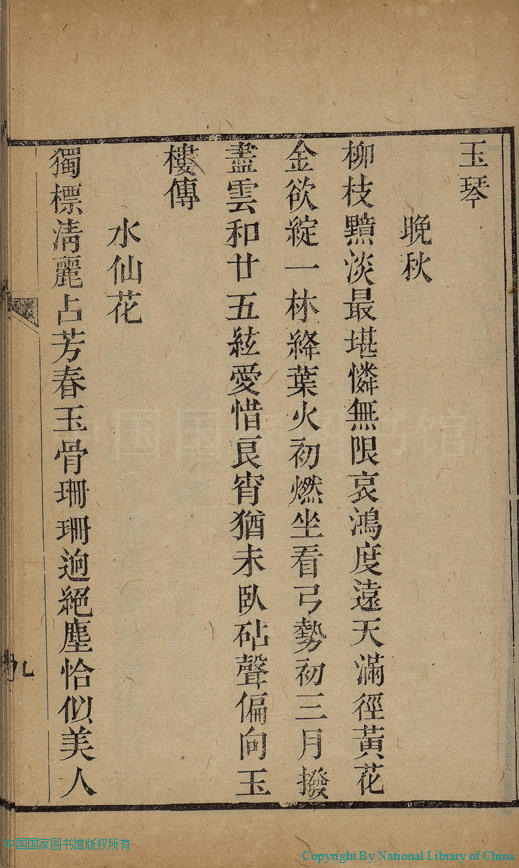 玉琴
晚秋
柳枝黯淡最堪憐無限哀鴻度遠天滿徑黃花
金欲綻一林絳葉火初燃坐看弓勢初三月撥
盡雲和廿五絃愛惜良宵猶未臥砧聲偏向玉
樓傳
水仙花
獨標清麗占芳春玉骨珊珊迥絕塵恰似美人
九
中国国家图书馆
中国国家图书馆版权所有
Copyright By National Library of China